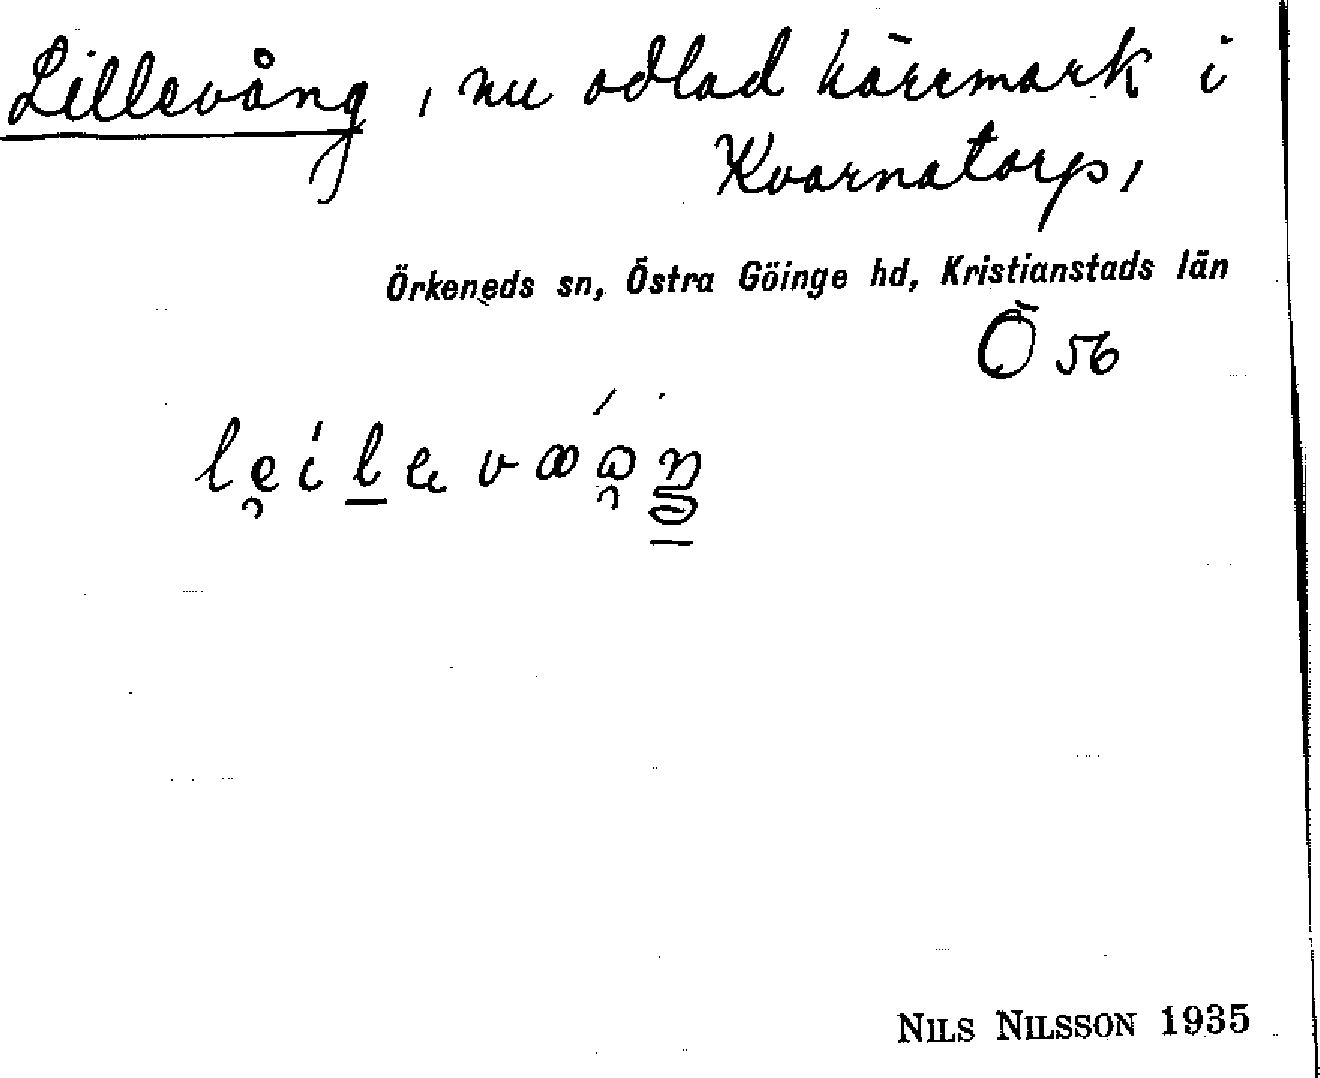 Lillevång, nu odlad kärrmark i
Kvarnatorp,
Örkeneds sn, Östra Göinge hd, Kristianstads län
Ö 56
NILS NILSSON 1935